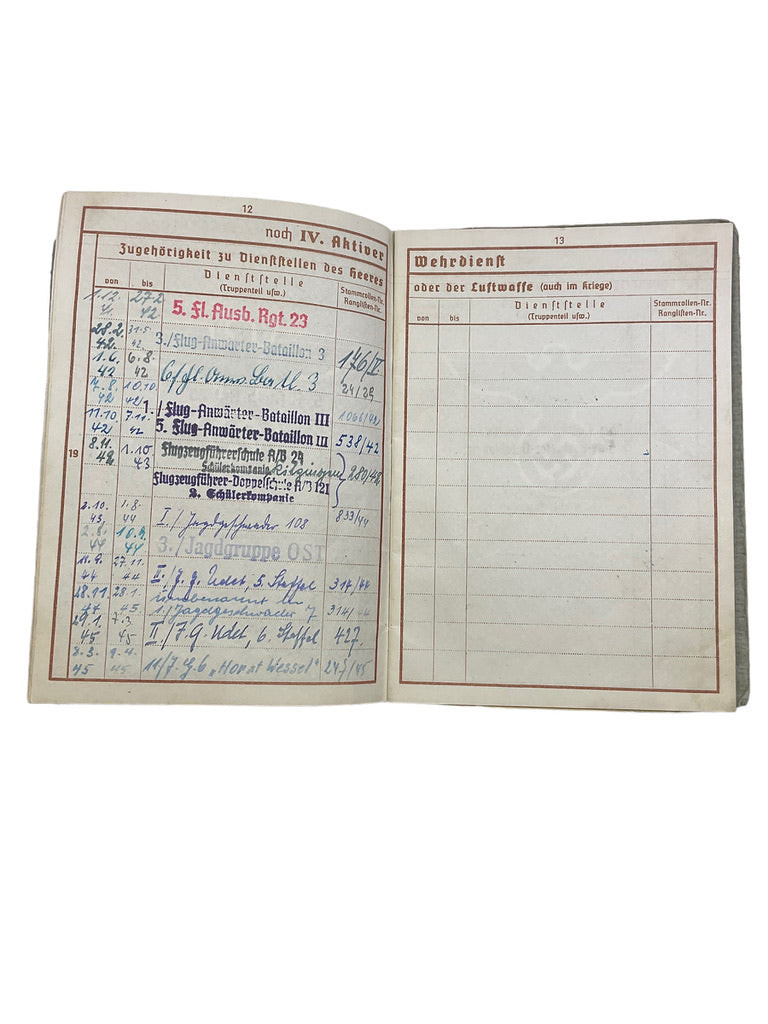 12
noch IV. Aktiver
Zugehörigkeit zu Dienststellen des Heeres
von bis Dienststelle (Truppenteil usw.) Stammrollen-Nr. Ranglisten-Nr.
1.12. 27.2. 42 5. Fl. Ausb. Rgt. 23
28.2. 42. 31.5. 42. 3./Flug-Anwärter-Bataillon 3 176/IV
1.6. 42 6.8. 42 3 24/29
7.8. 42 10.10 42 1./Flug-Anwärter-Bataillon III
11.10. 42 7.11. 42 5. Flug-Anwärter-Bataillon III 538/42
19
8.11. 42 1.10. 43 Flugzeugführerschule A/B 24 280/42
Schülerkompanie
Flugzeugführer-Doppelschule A/B 121
2. Schülerkompanie
2.10. 43. 1.8. 44 I./Jagdgeschwader 108 833/44
2.8. 44 10.9. 44 3./Jagdgruppe OST
11.9. 44 27.11. 44 II./J. G. Udet, 5. Staffel 314/44
28.11. 44 28.1. 45 umbenannt in
1./Jagdgeschwader 7 314/44
29.1. 45 7.3. 45 II./J. G. Udet, 6. Staffel 427.
8.3. 45 9.4. 45 11/J.G.6 „Horst Wessel" 245/45
13
Wehrdienst
oder der Luftwaffe (auch im Kriege)
von bis Dienststelle (Truppenteil usw.) Stammrollen-Nr. Ranglisten-Nr.